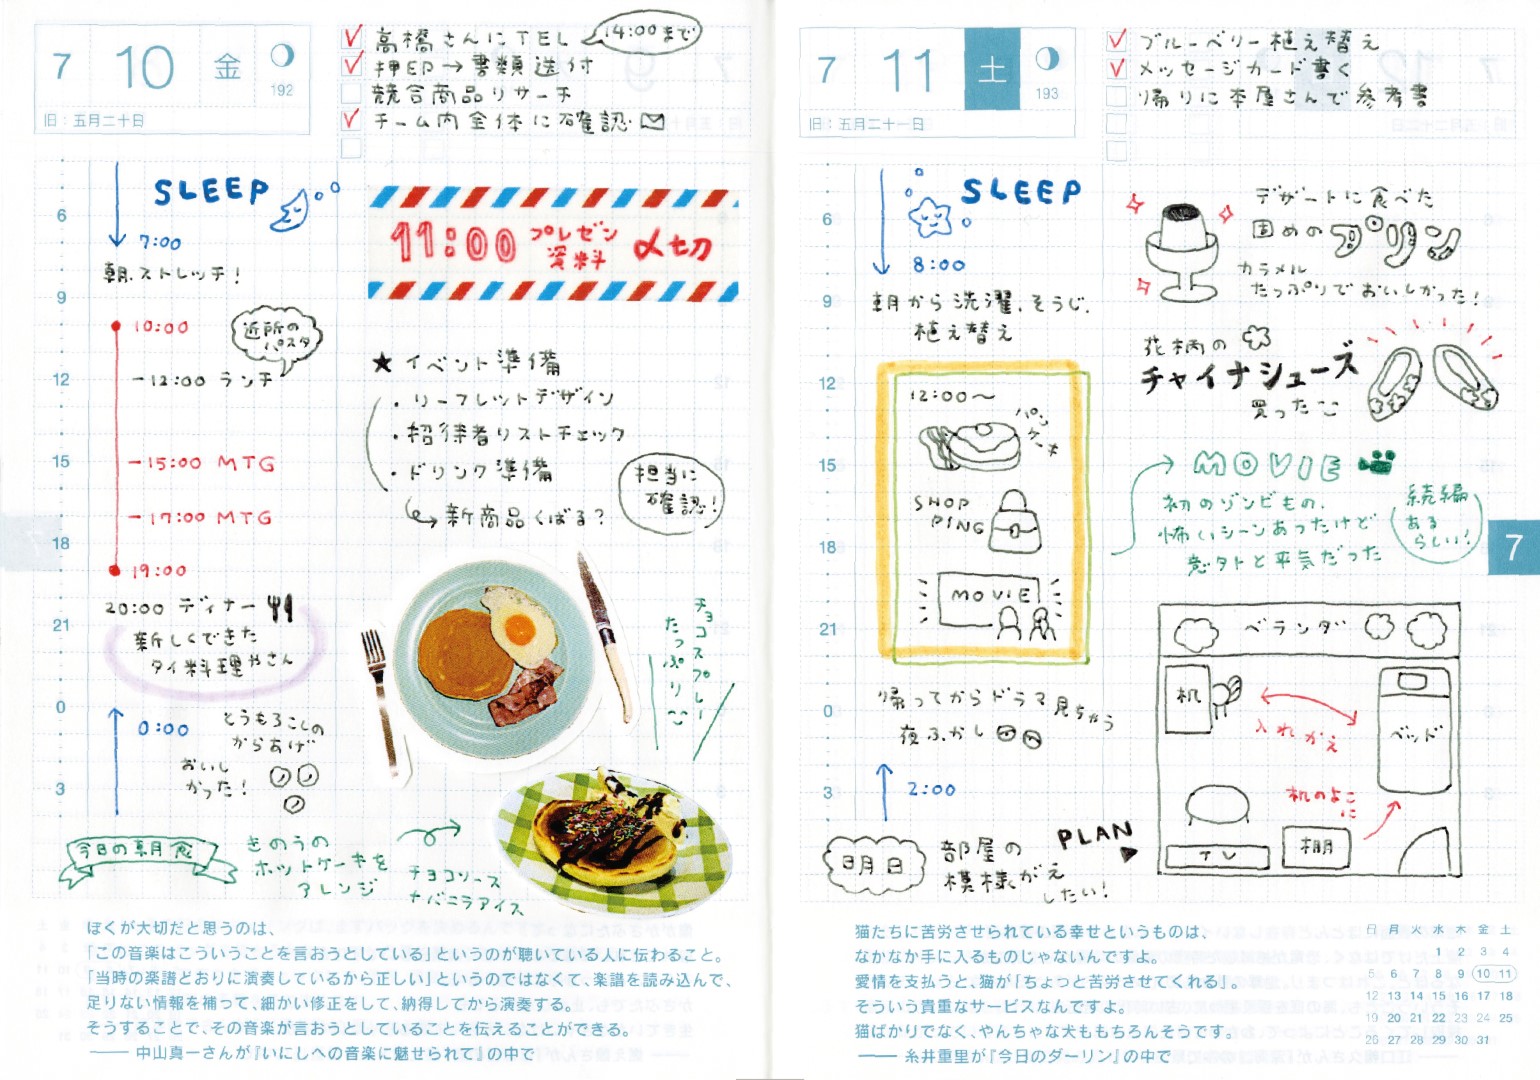 7 10 金
192
旧：五月二十日
高橋さんにTEL
14:00まで
押印→書類送付
競合商品リサーチ
チーム内全体に確認
SLEEP
6
7:00
朝、ストレッチ！
9
10:00
近所の
パスタ
12
-12:00 ランチ
15
-15:00 MTG
-17:00 MTG
18
19:00
20:00 ディナー
21
新しくできた
タイ料理やさん
0
0:00
とうもろこしの
からあげ
おいし
かった！
3
11:00 プレゼン
資料 〆切
★イベント準備
・リーフレットデザイン
・招待者リストチェック
・ドリンク準備
新商品くばる？
担当に
確認！
チョコスプレー
たっぷり
今日の朝食
きのうの
ホットケーキを
アレンジ
チョコソース
+バニラアイス
ぼくが大切だと思うのは、
「この音楽はこういうことを言おうとしている」というのが聴いている人に伝わること。
「当時の楽譜どおりに演奏しているから正しい」というのではなくて、楽譜を読み込んで、
足りない情報を補って、細かい修正をして、納得してから演奏する。
そうすることで、その音楽が言おうとしていることを伝えることができる。
——中山真一さんが『いにしへの音楽に魅せられて』の中で
7 11 土
193
旧：五月二十一日
ブルーベリー植え替え
メッセージカード書く
帰りに本屋さんで参考書
SLEEP
6
8:00
9
朝から洗濯、そうじ、
植え替え
12
12:00〜
パンケーキ
15
SHOP
PING
18
MOVIE
21
帰ってからドラマ見ちゃう
0
夜ふかし
3
2:00
明日
部屋の
模様がえ
したい！
PLAN
デザートに食べた
固めのプリン
カラメル
たっぷりでおいしかった！
花柄の
チャイナシューズ
買った
MOVIE
初のゾンビもの、
怖いシーンあったけど
意外と平気だった
続編
ある
らしい！
7
ベランダ
机
入れかえ
ベッド
机のよこ
に
TV
棚
猫たちに苦労させられている幸せというものは、
なかなか手に入るものじゃないんですよ。
愛情を支払うと、猫が「ちょっと苦労させてくれる」。
そういう貴重なサービスなんですよ。
猫ばかりでなく、やんちゃな犬ももちろんそうです。
——糸井重里が『今日のダーリン』の中で
日 月 火 水 木 金 土
1 2 3 4
5 6 7 8 9 10 11
12 13 14 15 16 17 18
19 20 21 22 23 24 25
26 27 28 29 30 31